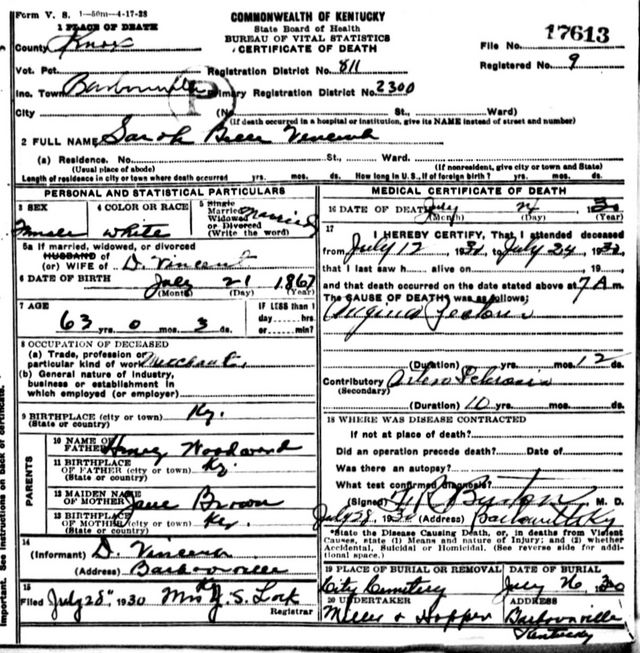 Form V. S. 1-50m-4-17-28
COMMONWEALTH OF KENTUCKY
State Board of Health
BUREAU OF VITAL STATISTICS
CERTIFICATE OF DEATH
1 PLACE OF DEATH
County Knox
File No. 17613
Vot. Pct. Registration District No. 811
Registered No. 9
Inc. Town Barbourville Primary Registration District No. 2300
City (No. St., Ward)
(If death occurred in a hospital or institution, give its NAME instead of street and number)
2 FULL NAME Sarah Vincent
(a) Residence. No. St., Ward.
(Usual place of abode) (If nonresident, give city or town and State)
Length of residence in city or town where death occurred yrs. mos. ds. How long in U.S., if of foreign birth? yrs. mos. ds.
PERSONAL AND STATISTICAL PARTICULARS
3 SEX 4 COLOR OR RACE 5 Single Married Widowed or Divorced (Write the word) Married
Female White
5a If married, widowed, or divorced
HUSBAND of
(or) WIFE of D. Vincent
6 DATE OF BIRTH July 21 1867
(Month) (Day) (Year)
7 AGE IF LESS than 1 day....hrs. or....min?
63 yrs. 0 mos. 3 ds.
8 OCCUPATION OF DECEASED
(a) Trade, profession or particular kind of work Merchant.
(b) General nature of industry, business or establishment in which employed (or employer)
9 BIRTHPLACE (city or town) Ky.
(State or country)
PARENTS
10 NAME OF FATHER Henry Woodward
11 BIRTHPLACE OF FATHER (city or town) Ky.
(State or country)
12 MAIDEN NAME OF MOTHER Jane Brown
13 BIRTHPLACE OF MOTHER (city or town) Ky.
(State or country)
14
(Informant) D. Vincent
(Address) Barbourville
Ky
15
Filed July 28" 1930 Mrs J. S. Lock
Registrar
MEDICAL CERTIFICATE OF DEATH
16 DATE OF DEATH July 24 1930
(Month) (Day) (Year)
17 I HEREBY CERTIFY, That I attended deceased
from July 12, 1930, to July 24 1930,
that I last saw h alive on , 19 ,
and that death occurred on the date stated above at 7 A m.
The CAUSE OF DEATH was as follows:
Angina Pectoris
(Duration) yrs. mos. 12 ds.
Contributory Arterio Sclerosis
(Secondary)
(Duration) 10 yrs. mos. ds.
18 WHERE WAS DISEASE CONTRACTED
If not at place of death?
Did an operation precede death? Date of
Was there an autopsy?
What test confirmed diagnosis?
(Signed) Burton M. D.
July 28, 1930 (Address) Barbourville Ky
*State the Disease Causing Death, or, in deaths from Violent
Causes, state (1) Means and nature of Injury; and (2) whether
Accidental, Suicidal or Homicidal. (See reverse side for addi-
tional space.)
19 PLACE OF BURIAL OR REMOVAL DATE OF BURIAL
City Cemetery July 26 1930
20 UNDERTAKER ADDRESS
Miller & Hopper Barbourville
Kentucky
Important. See instructions on back of certificate.